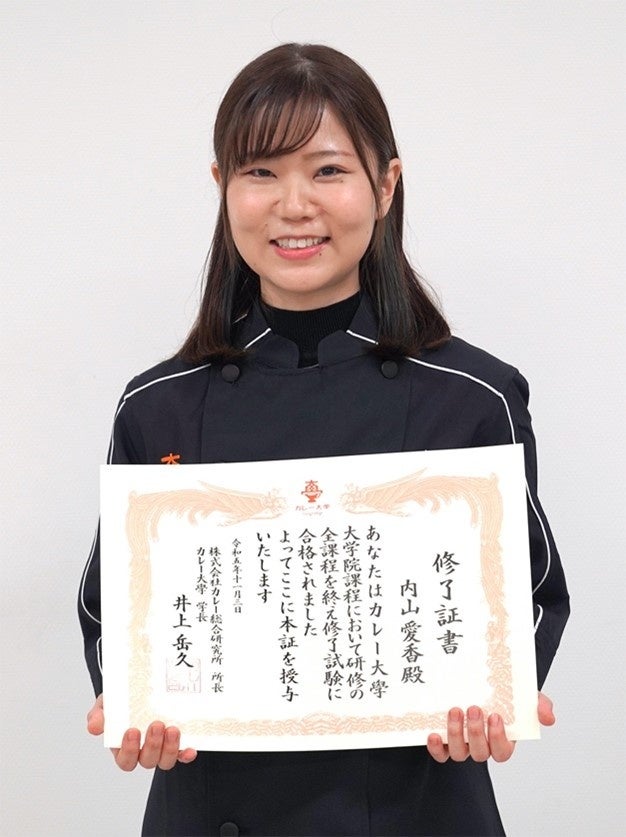 カレー大学
修了証書
内山愛香殿
あなたはカレー大学
大学院課程において研修の
全課程を終え修了試験に
合格されました
よってここに本証を授与
いたします
令和五年十一月三日
株式会社カレー総合研究所 所長
カレー大学 学長
井上岳久